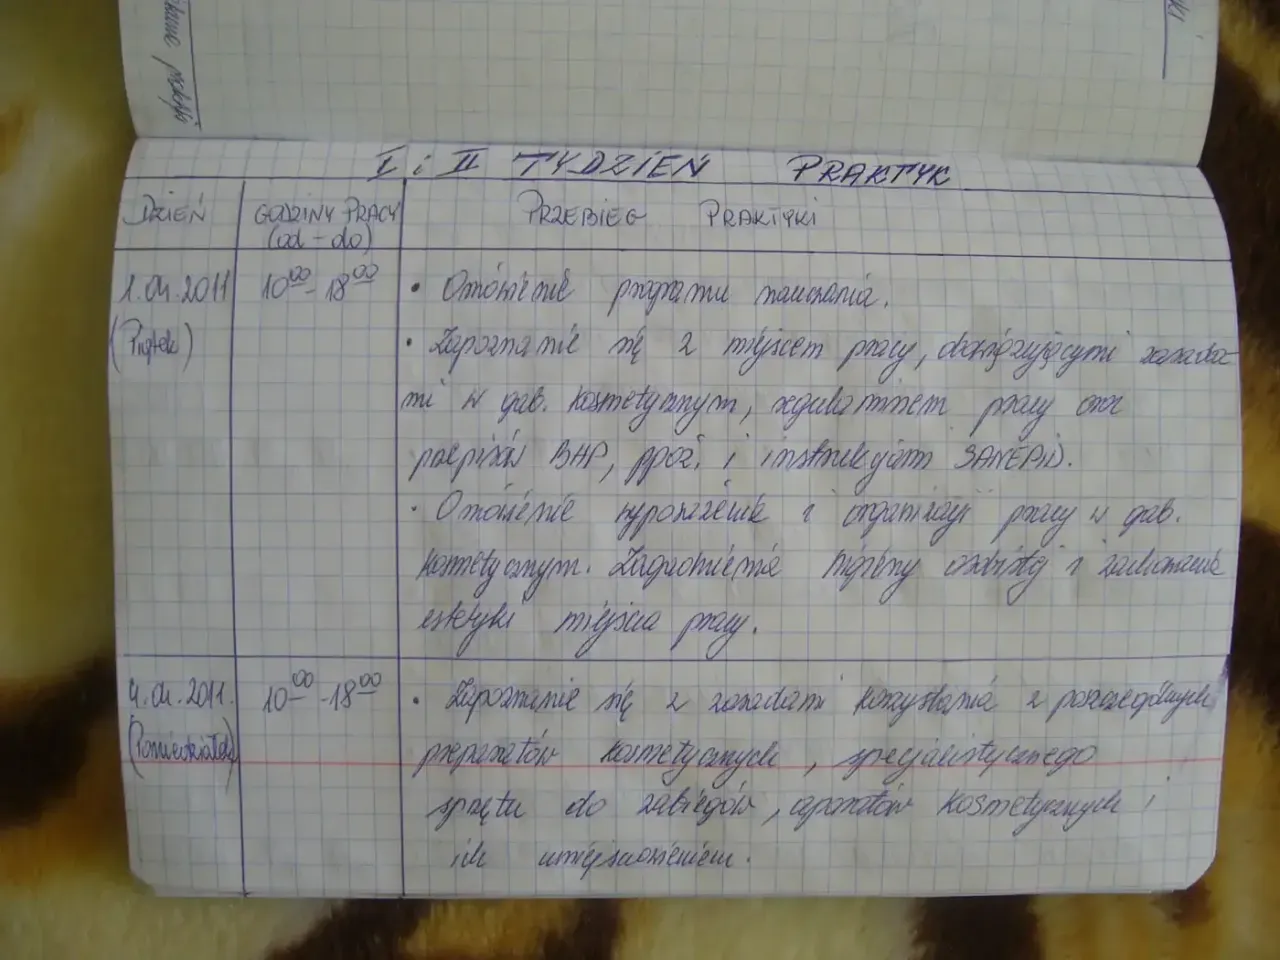 I i II TYDZIEŃ PRAKTYK
DZIEŃ
GODZINY PRACY
(od - do)
PRZEBIEG PRAKTYKI
1.04.2011
(Piątek)
10⁰⁰-18⁰⁰
• Omówienie programu nauczania.
• Zapoznanie się z miejscem pracy, obowiązującymi zasada-
mi w gab. kosmetycznym, regulaminem pracy oraz
przepisów BHP, ppoż. i instrukcjami SANEPID.
• Omówienie wyposażenia i organizacji pracy w gab.
kosmetycznym. Zagadnienia higieny osobistej i zachowania
estetyki miejsca pracy.
4.04.2011.
(Poniedziałek)
10⁰⁰-18⁰⁰
• Zapoznanie się z zasadami korzystania z poszczególnych
preparatów kosmetycznych, specjalistycznego
sprzętu do zabiegów, aparatów kosmetycznych i
ich umiejscowieniem.